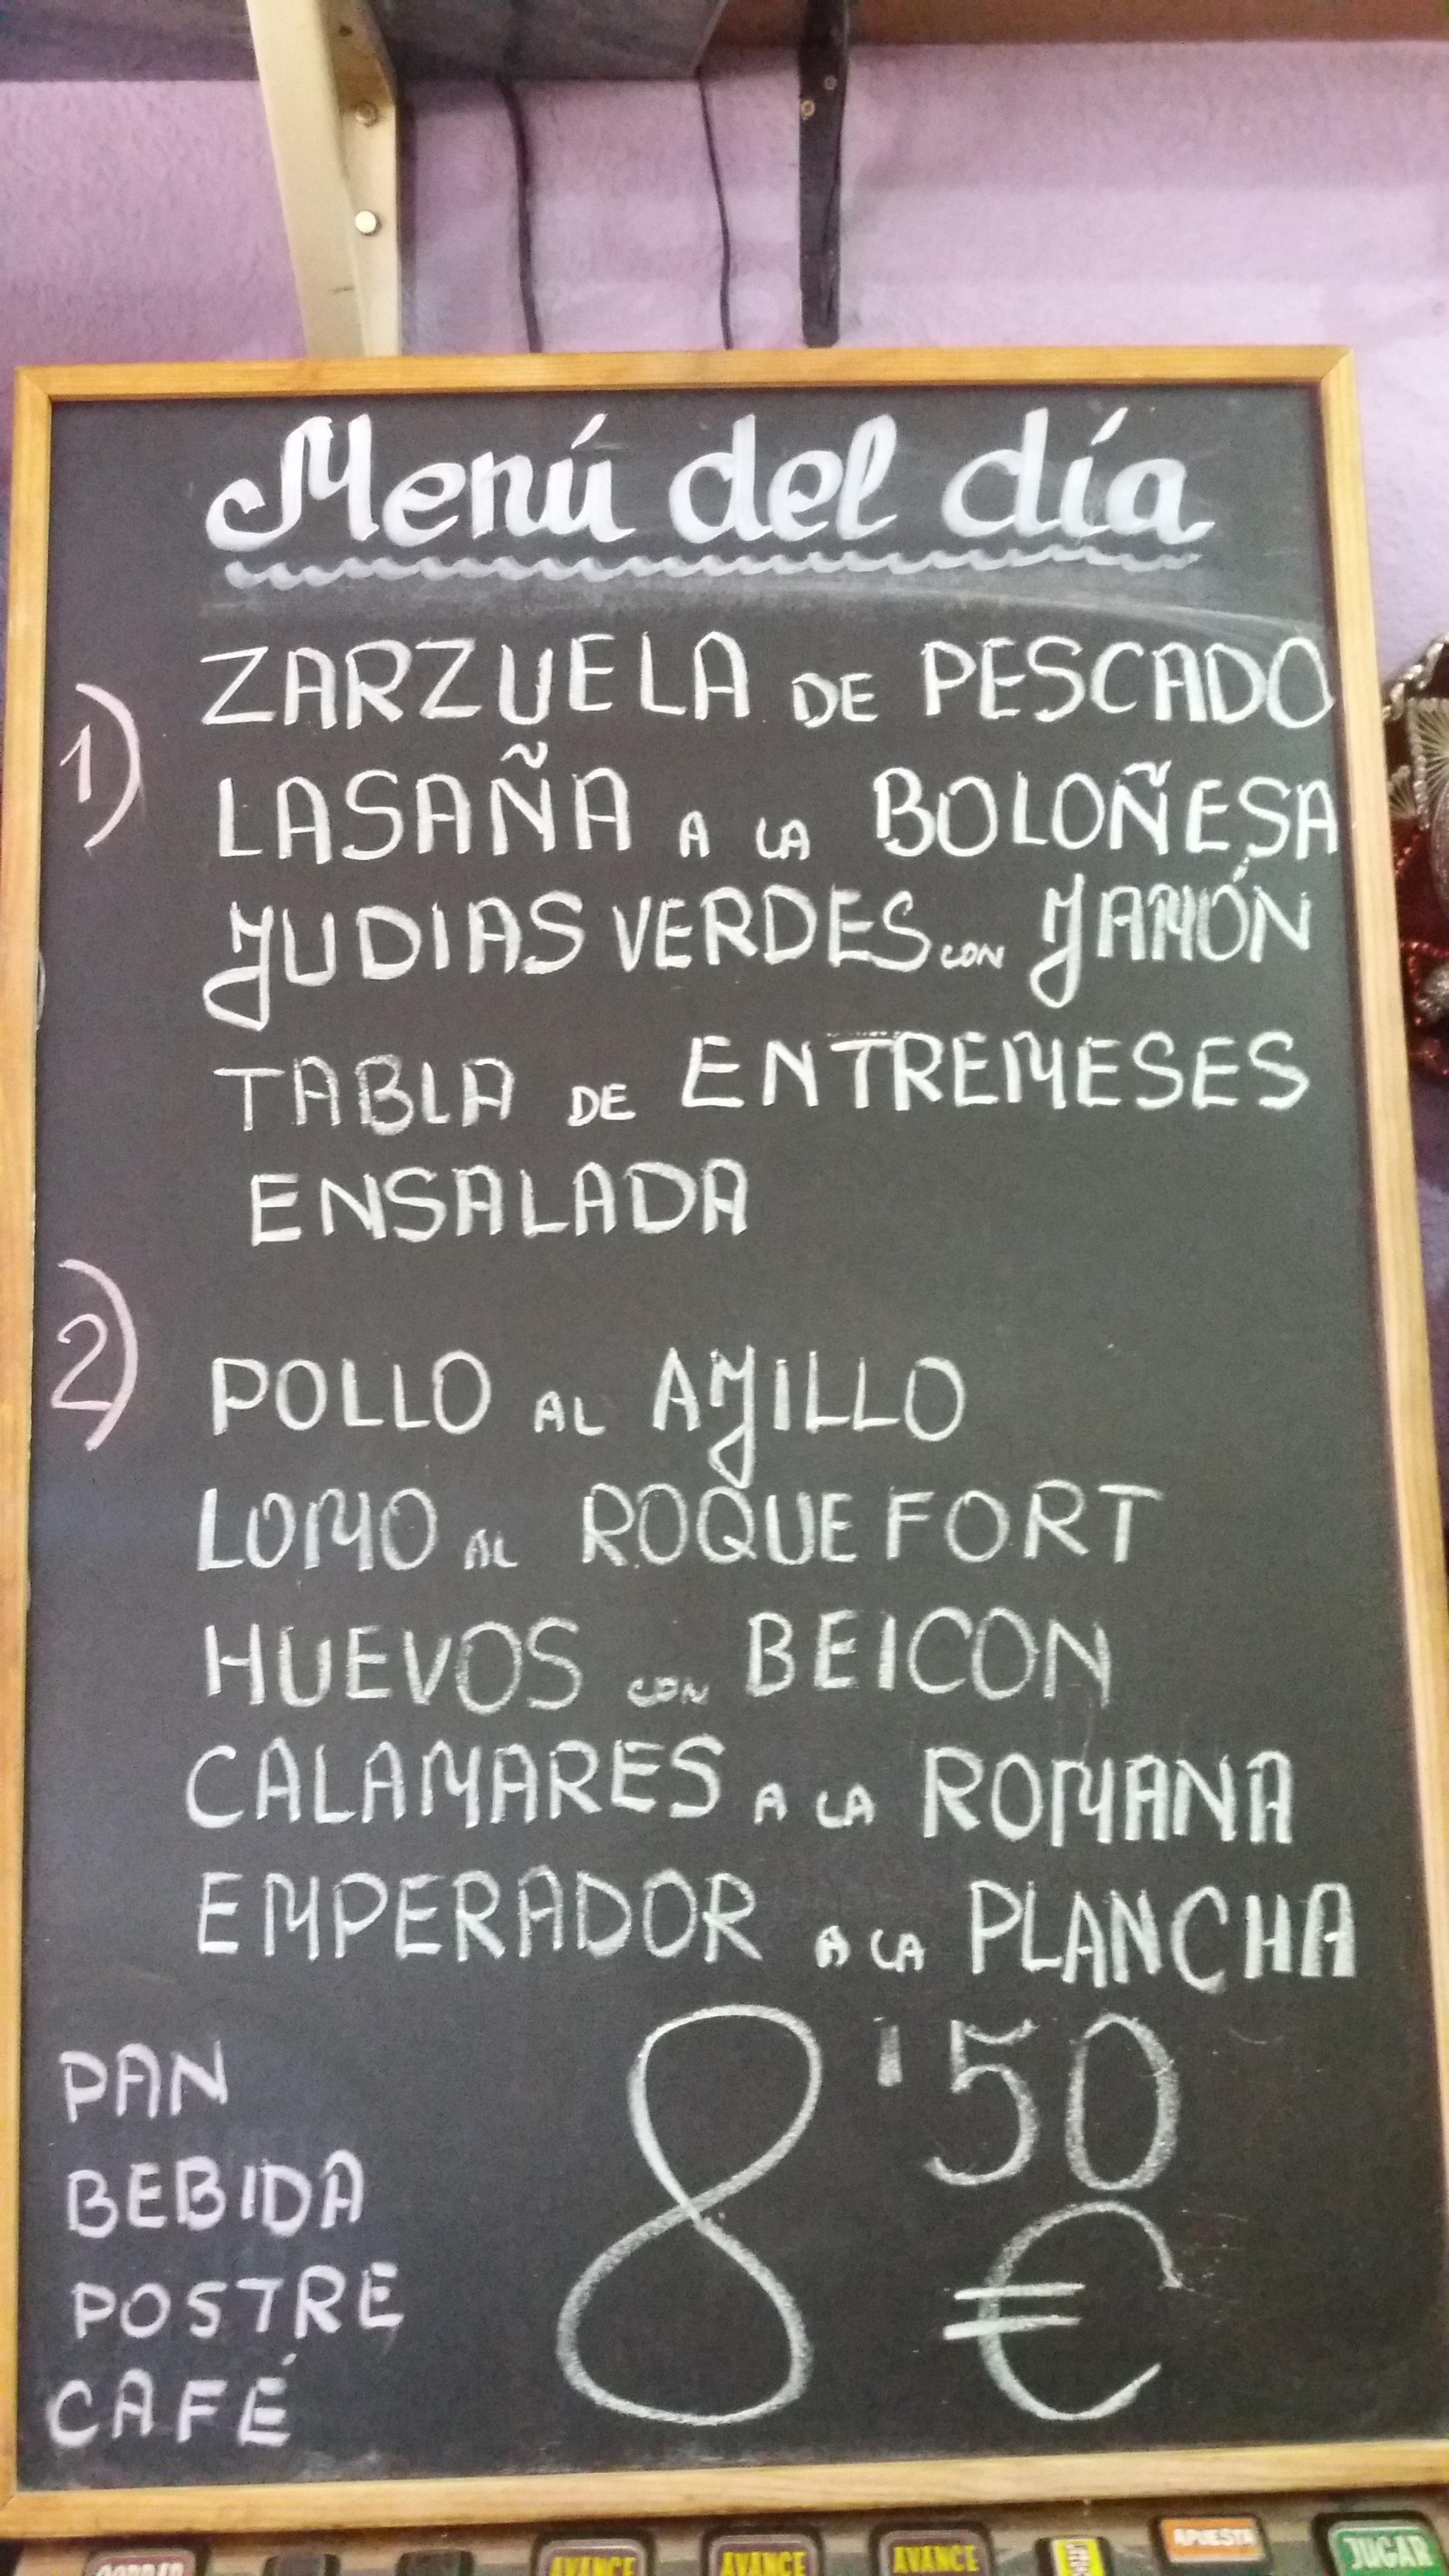 Menú del día
1) ZARZUELA DE PESCADO
LASAÑA A LA BOLOÑESA
JUDIAS VERDES CON JAMÓN
TABLA DE ENTREMESES
ENSALADA
2) POLLO AL AJILLO
LOMO AL ROQUEFORT
HUEVOS CON BEICON
CALAMARES A LA ROMANA
EMPERADOR A LA PLANCHA
PAN
BEBIDA
POSTRE
CAFÉ
8'50
€
COBRAR AVANCE AVANCE AVANCE APUESTA JUGAR